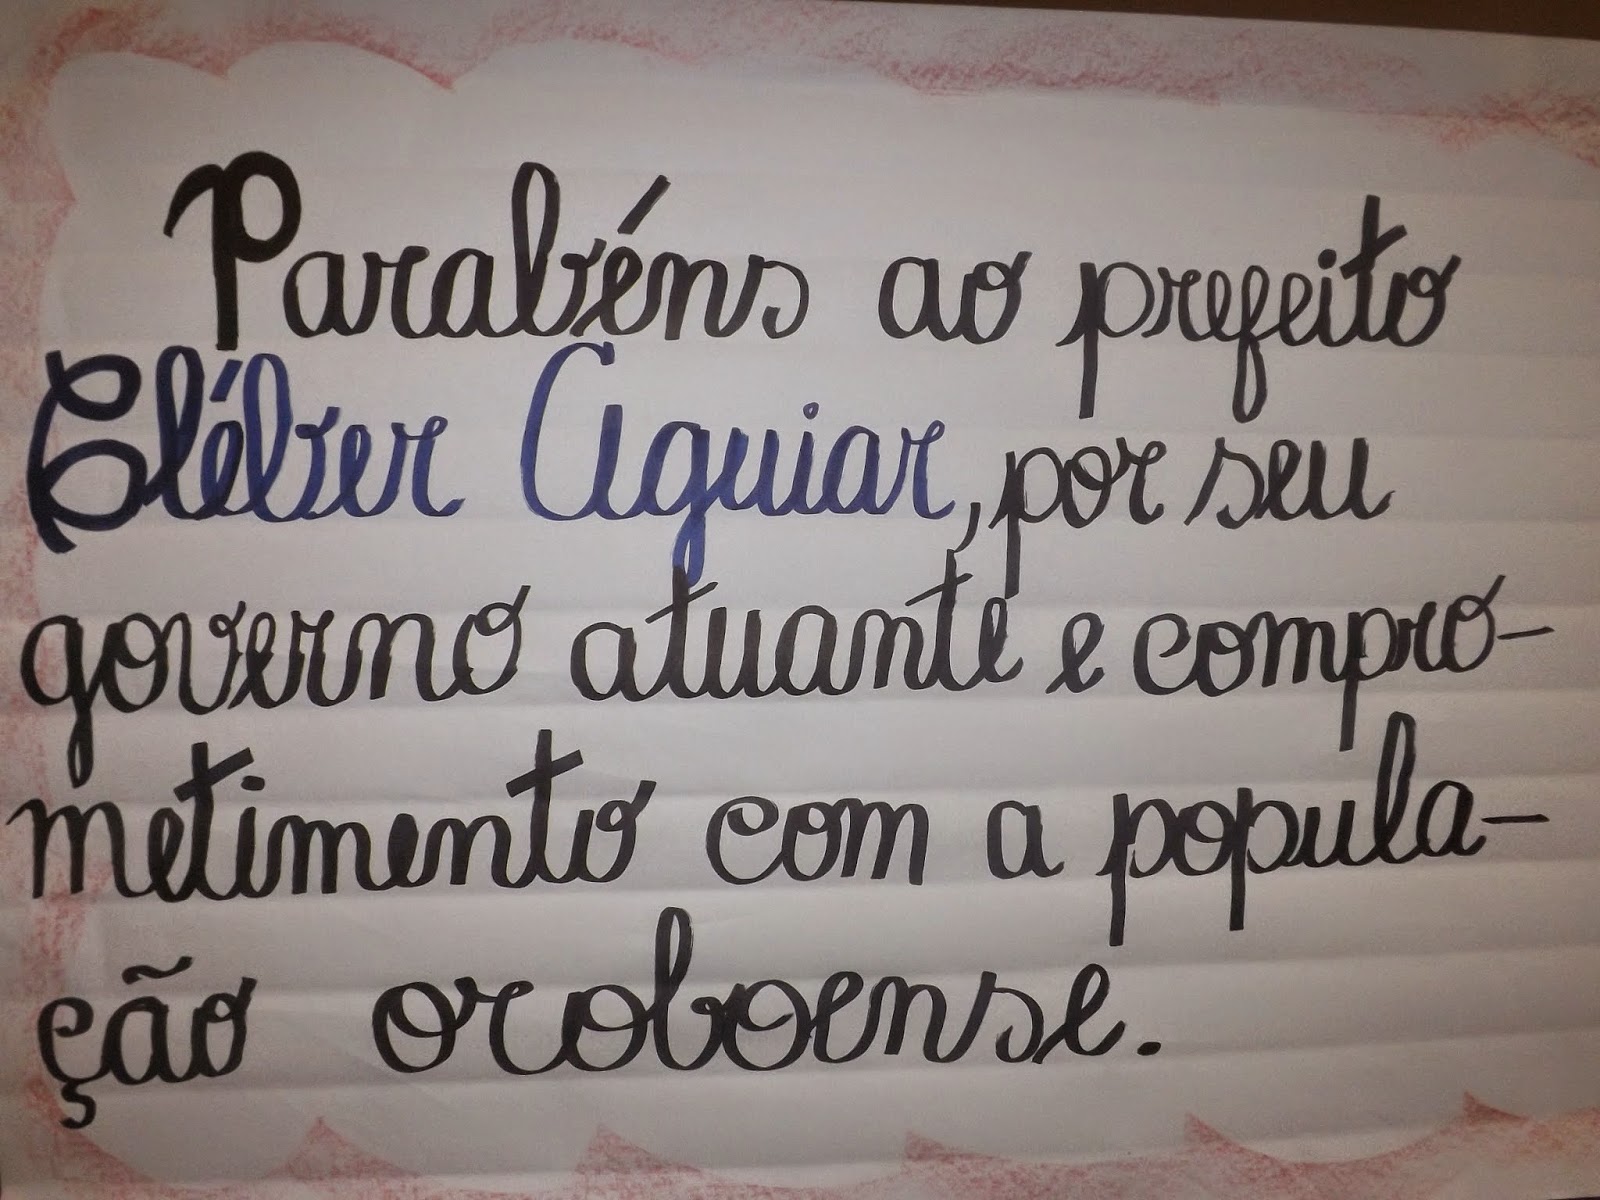 Parabéns ao prefeito
Cléber Aguiar, por seu
governo atuante e compro-
metimento com a popula-
ção oroboense.